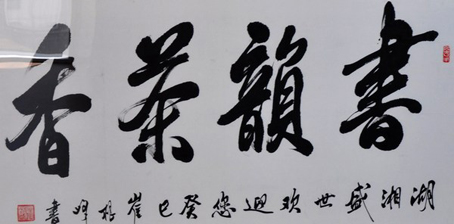 書韻茶香
湖湘盛世欢迎您癸巳崔

書